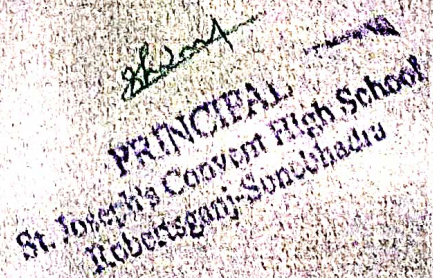 PRINCIPAL
St. Joseph's Convent High School
Robertsganj-Sonebhadra